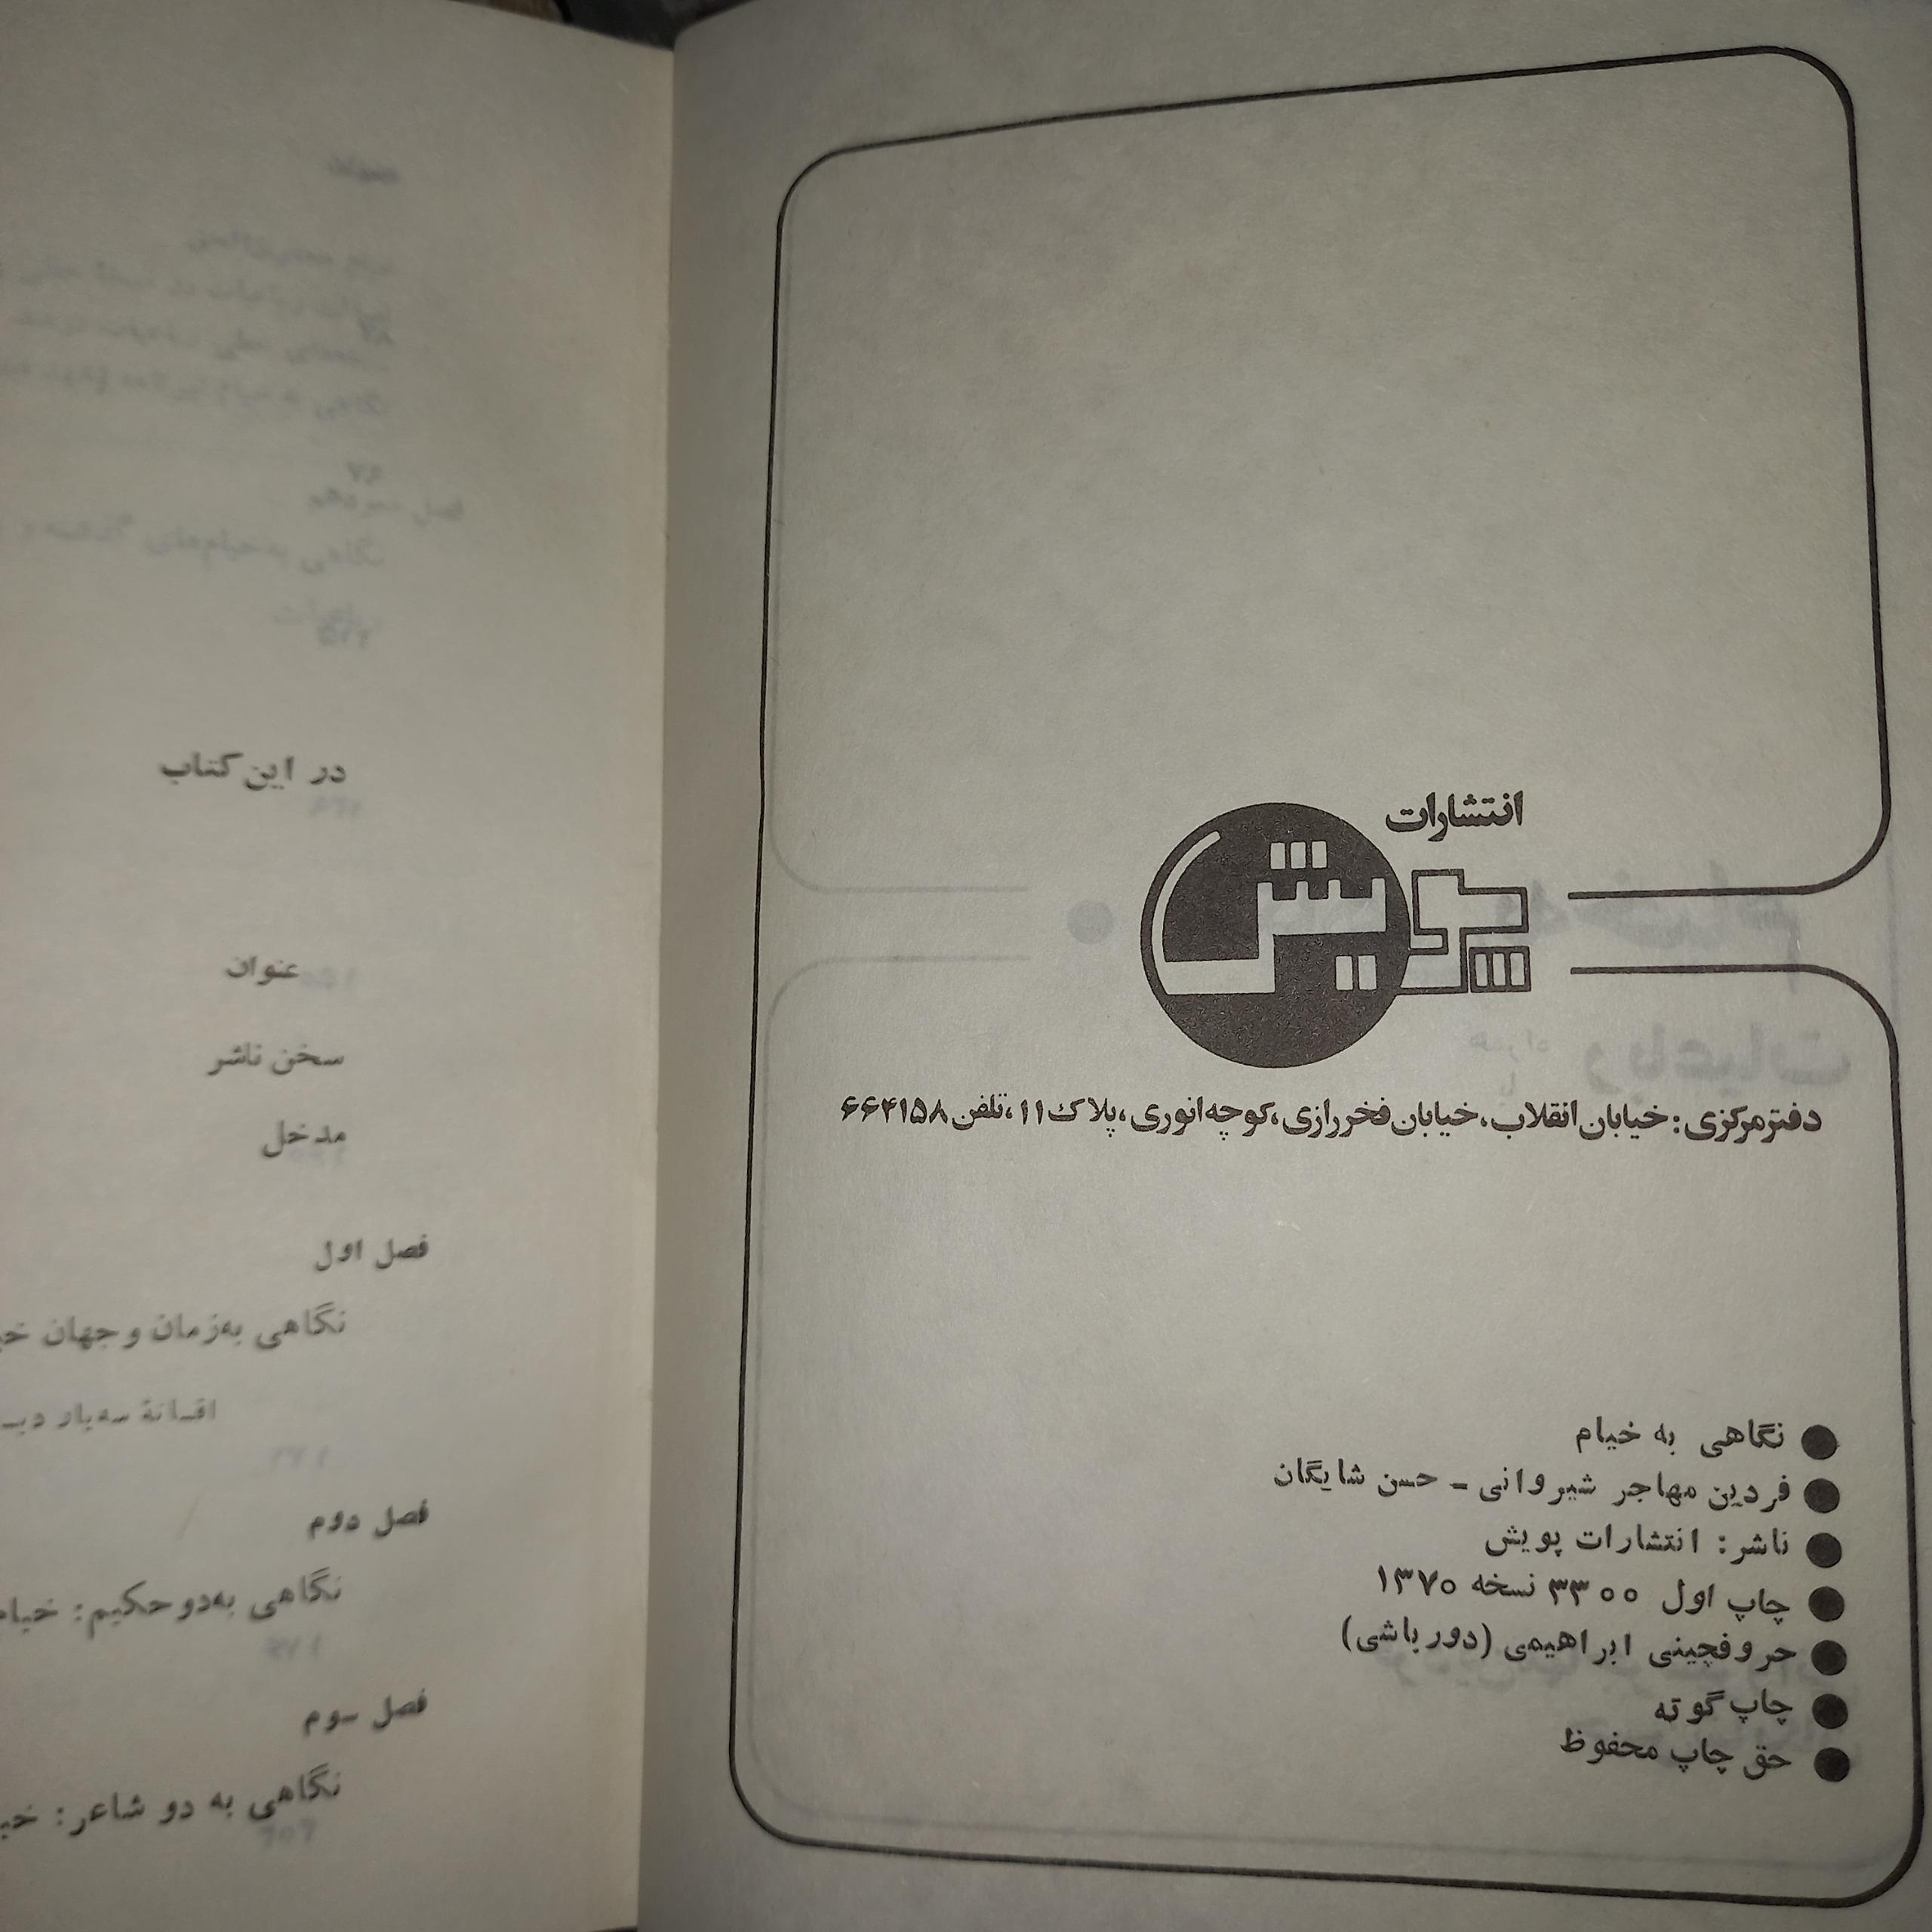 انتشارات
پویش
دفتر مرکزی: خیابان انقلاب، خیابان فخر رازی، کوچه انوری، پلاک ۱۱، تلفن ۶۶۴۱۵۸
نگاهی به خیام
فردین مهاجر شیروانی - حسن شایگان
ناشر: انتشارات پویش
چاپ اول ۳۳۰۰ نسخه ۱۳۷۰
حروفچینی ابراهیمی (دورباشی)
چاپ گوته
حق چاپ محفوظ
در این کتاب
عنوان
سخن ناشر
مدخل
فصل اول
نگاهی به‌زمان و جهان
افسانهٔ سه‌یار
فصل دوم
نگاهی به‌دو حکیم: خیام
فصل سوم
نگاهی به دو شاعر: